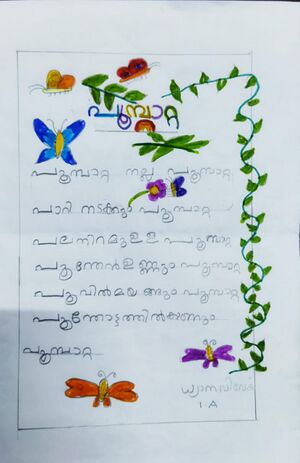 പൂമ്പാറ്റ
പൂമ്പാറ്റ നല്ല പൂമ്പാറ്റ
പാറി നടക്കും പൂമ്പാറ്റ
പല നിറമുള്ള പൂമ്പാറ്റ
പൂന്തേൻ ഉണ്ണും പൂമ്പാറ്റ
പൂവിൽ മയങ്ങും പൂമ്പാറ്റ
പൂന്തോട്ടത്തിൽ കാണും
പൂമ്പാറ്റ
ധ്യാന വിവേക്
1 A